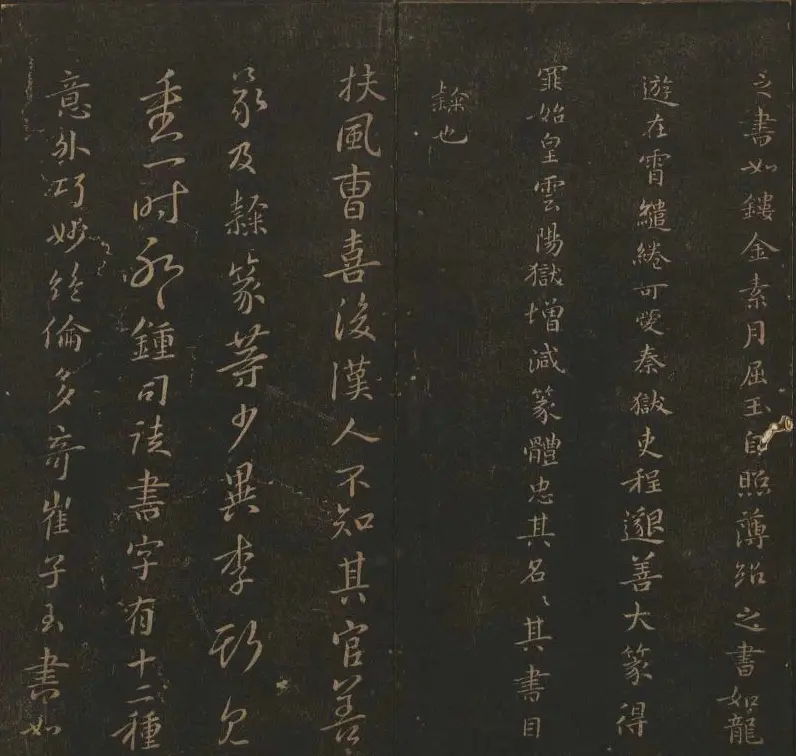 之書如鏤金素月屈玉自照薄紹之書如龍
遊在霄繾綣可愛秦獄吏程邈善大篆得
罪始皇雲陽獄增減篆體忠其名〻其書曰
隸也
扶風曹喜後漢人不知其官善
篆及隸篆等少異李斯見
重一時耶鍾司徒書字有十二種
意外巧妙絕倫多奇崔子玉書如